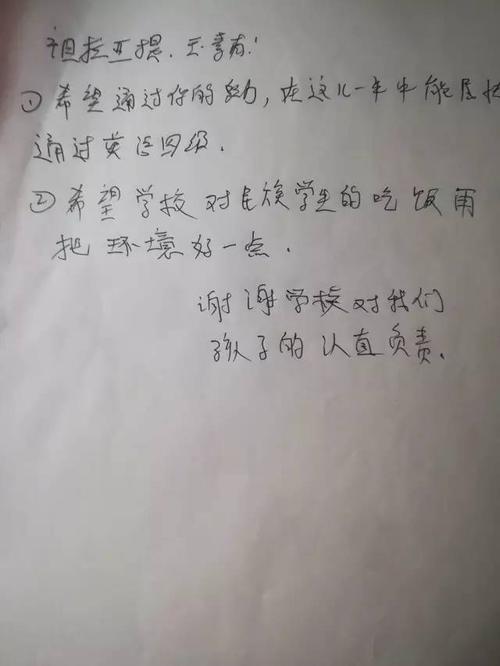 祖拉亚提.玉素甫:
①希望通过你的努力,在这儿一年中能尽快
通过英语四级.
②希望学校对民族学生的吃饭再
把环境好一点.
谢谢学校对我们
孩子的认真负责.